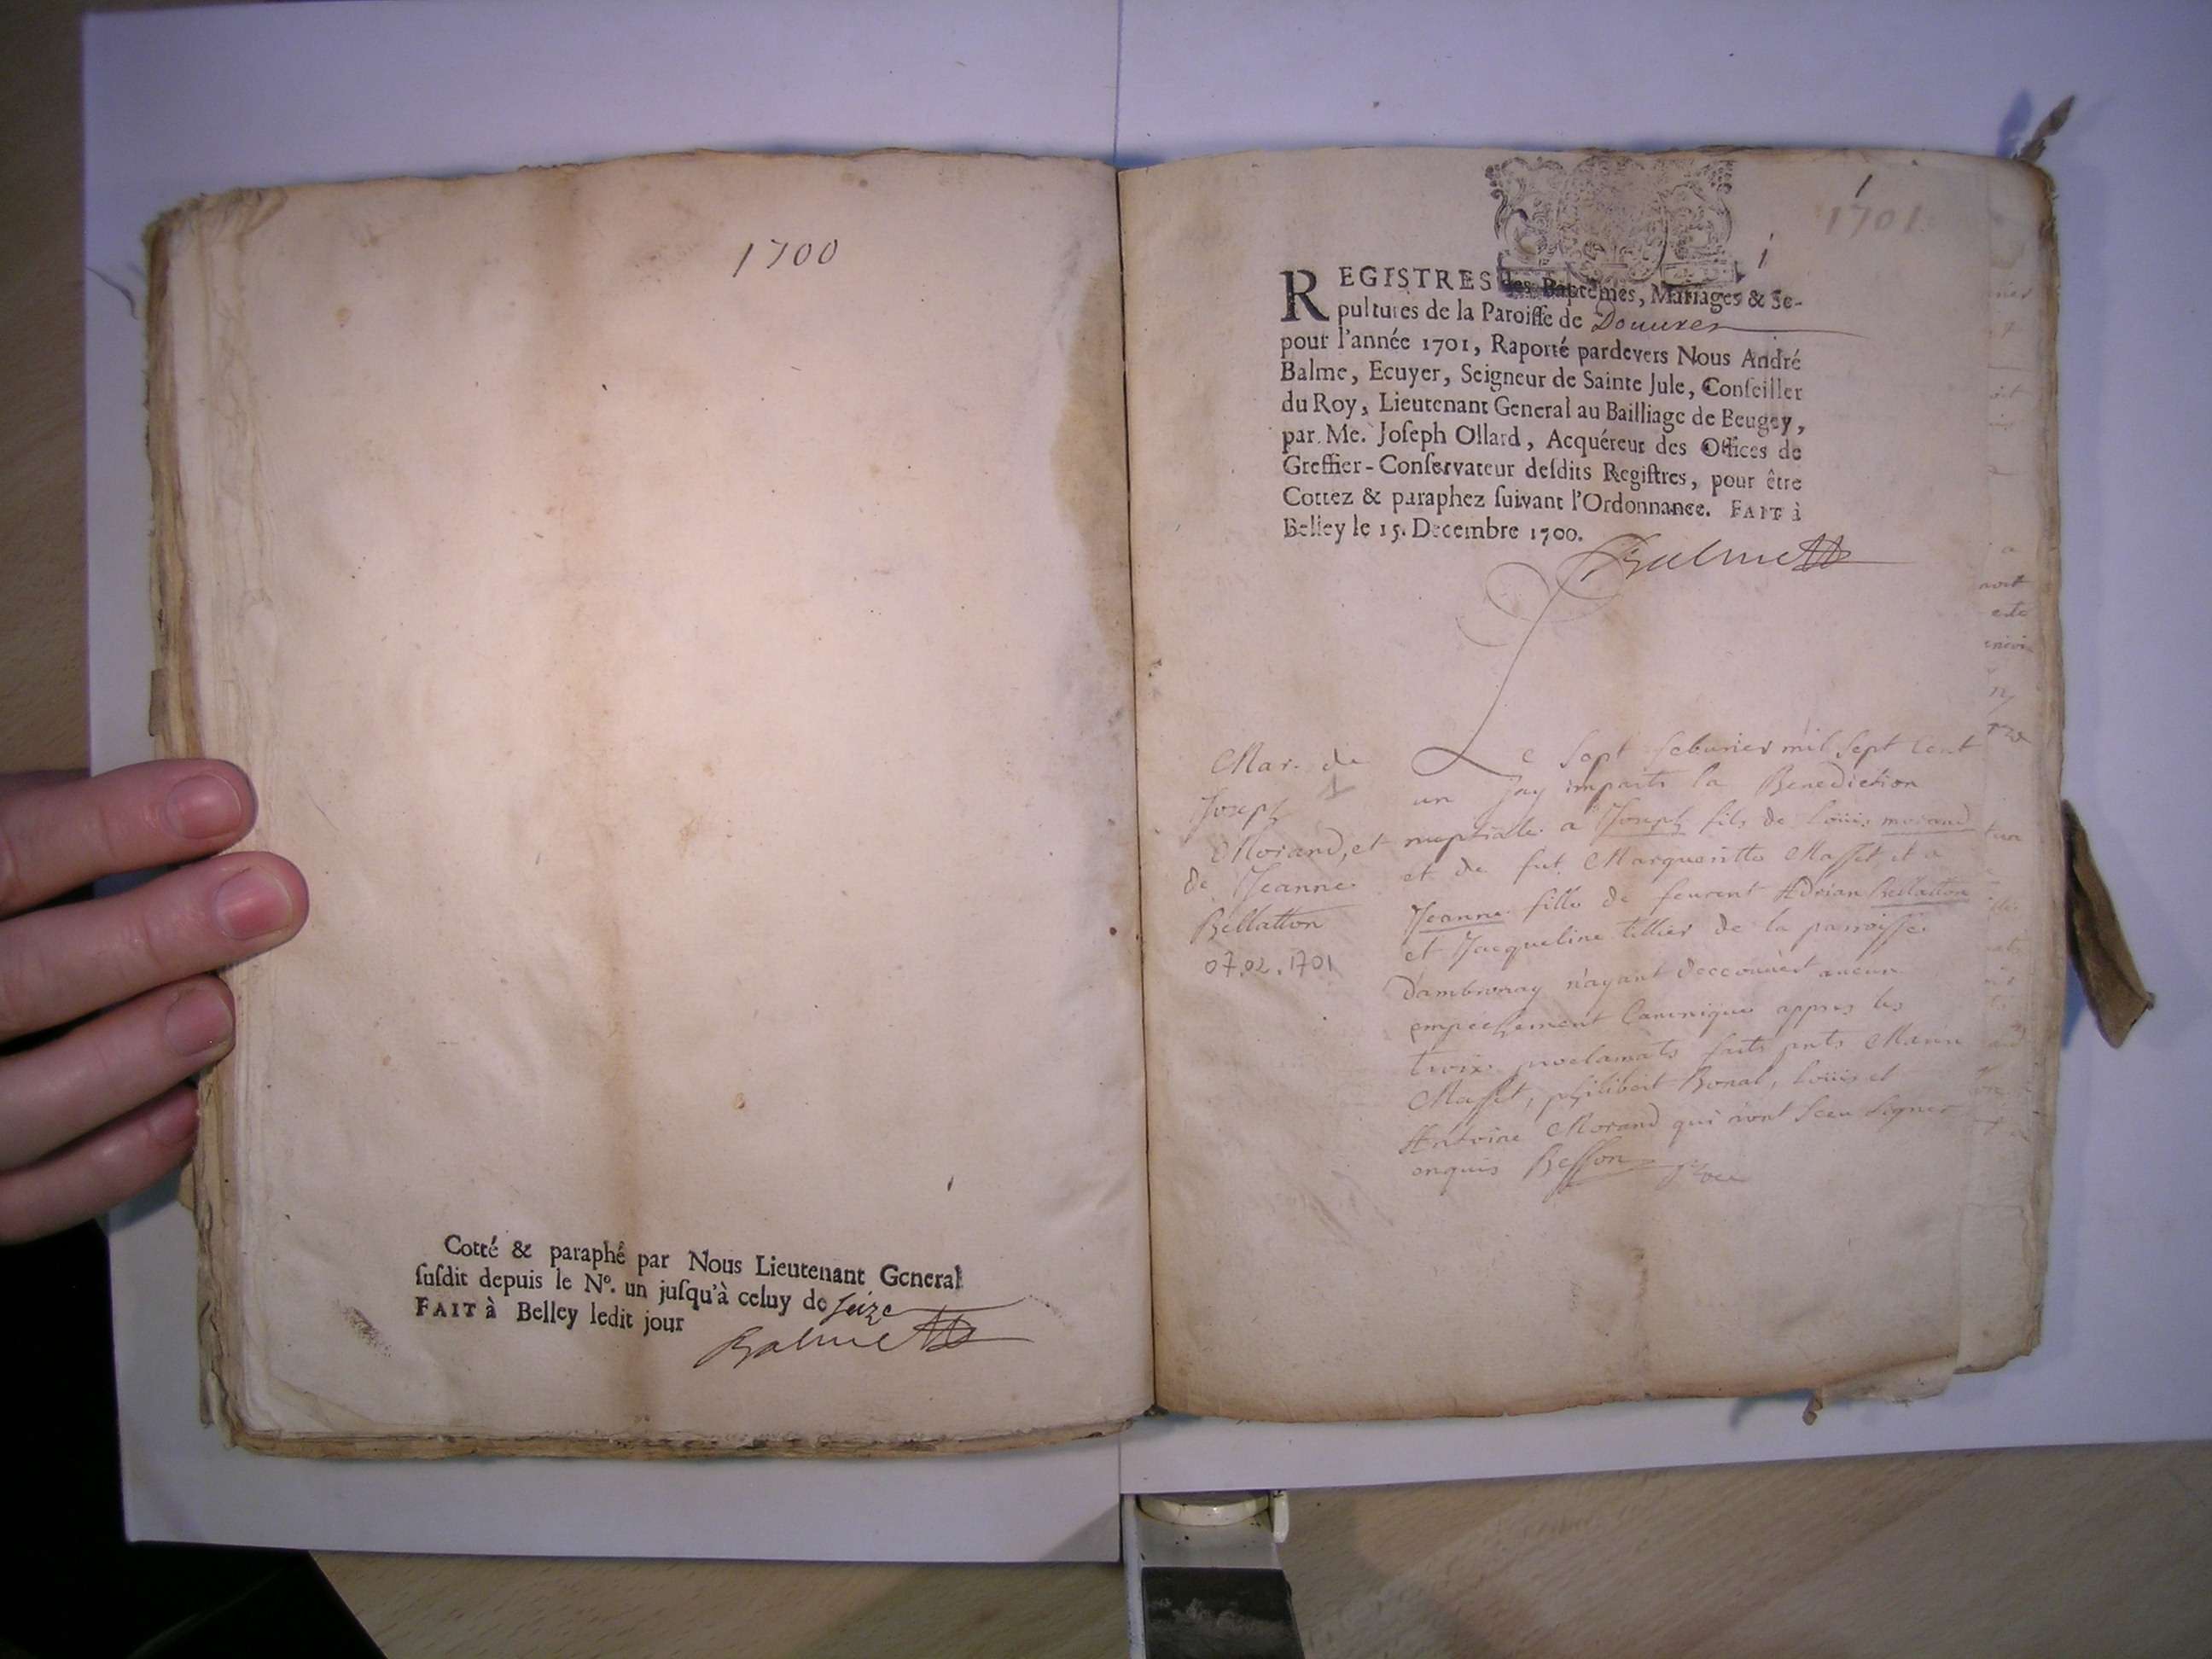 1700
Cotté & paraphé par Nous Lieutenant General
susdit depuis le Nº. un jusqu'à celuy de seize
FAIT à Belley ledit jour
Balme
1
1701
1
REGISTRES des Baptêmes, Mariages & Se-
pultures de la Paroisse de Douures
pour l'année 1701, Raporté pardevers Nous André
Balme, Ecuyer, Seigneur de Sainte Jule, Conseiller
du Roy, Lieutenant General au Bailliage de Beugey,
par Me. Joseph Ollard, Acquéreur des Offices de
Greffier-Conservateur desdits Registres, pour être
Cottez & paraphez suivant l'Ordonnance. FAIT à
Belley le 15. Decembre 1700.
Balme
Mar. de
Joseph
Morand, et
de Jeanne
Bellatton
07.02.1701
Le sept feburier mil sept cent
un jay imparti la Benediction
nuptiale a Joseph fils de Loüis morand
et de fut Margueritte Masset, et a
Jeanne fille de feurent Adrian Bellatton
et Jacqueline tillier de la parroisse
d'ambronay n'ayant decouuert aucun
empechement Canonique appres les
trois proclamats faits pnts
Masset, philibert Bonal, loüis et
Antoine Morand qui n'ont sceu signer
enquis Besson